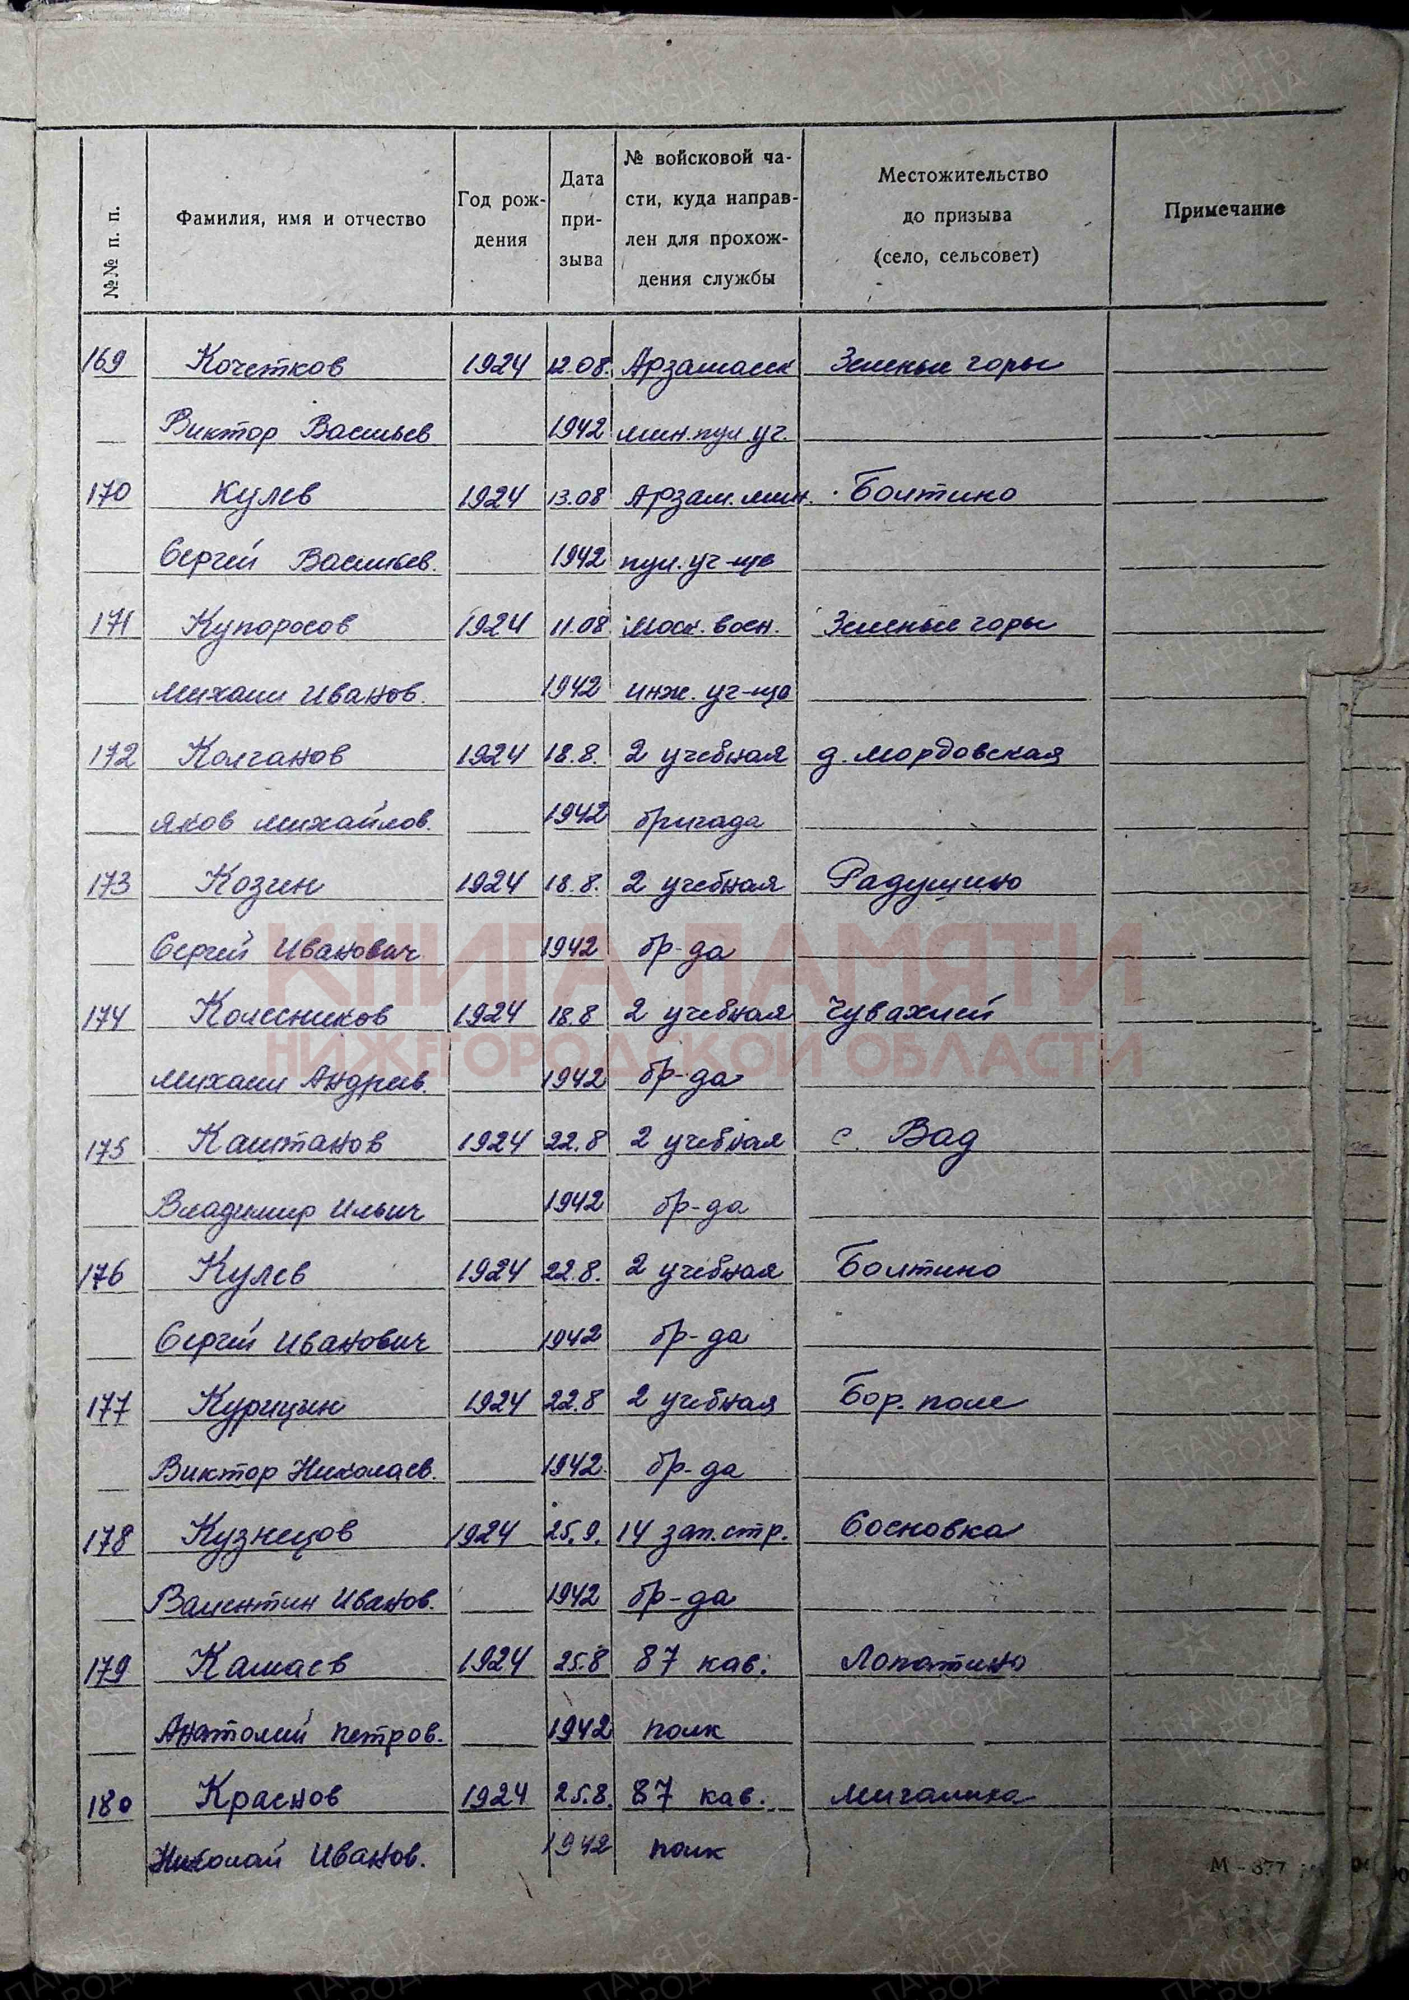 №№ п. п.
Фамилия, имя и отчество
Год рож-
дения
Дата
при-
зыва
№ войсковой ча-
сти, куда направ-
лен для прохож-
дения службы
Местожительство
до призыва
(село, сельсовет)
Примечание
169 Кочетков 1924 12.08. Арзамасск Зеленые горы
Виктор Васильев 1942 мин.пул.уч.
170 Кулев 1924 13.08 Арзам. мин. Болтино
Сергей Васильев. 1942 пул. уч-ще
171 Купоросов 1924 11.08 Моск. воен. Зеленые горы
Михаил Иванов. 1942 инж. уч-ще
172 Колганов 1924 18.8. 2 учебная д. Мордовская
Яков Михайлов. 1942 бригада
173 Козин 1924 18.8. 2 учебная Радушино
Сергей Иванович 1942 бр-да
КНИГА ПАМЯТИ
174 Колесников 1924 18.8 2 учебная Чувахлей
НИЖЕГОРОДСКОЙ ОБЛАСТИ
Михаил Андреев. 1942 бр-да
175 Каштанов 1924 22.8 2 учебная с. Вад
Владимир Ильич 1942 бр-да
176 Кулев 1924 22.8. 2 учебная Болтино
Сергей Иванович 1942 бр-да
177 Курицын 1924 22.8 2 учебная Бор. поле
Виктор Николаев. 1942 бр-да
178 Кузнецов 1924 25.9. 14 зап.стр. Сосновка
Валентин Иванов. 1942 бр-да
179 Камаев 1924 25.8 87 кав. Лопатино
Анатолий Петров. 1942 полк
180 Краснов 1924 25.8. 87 кав. Мигалиха
Николай Иванов. 1942 полк
М-377